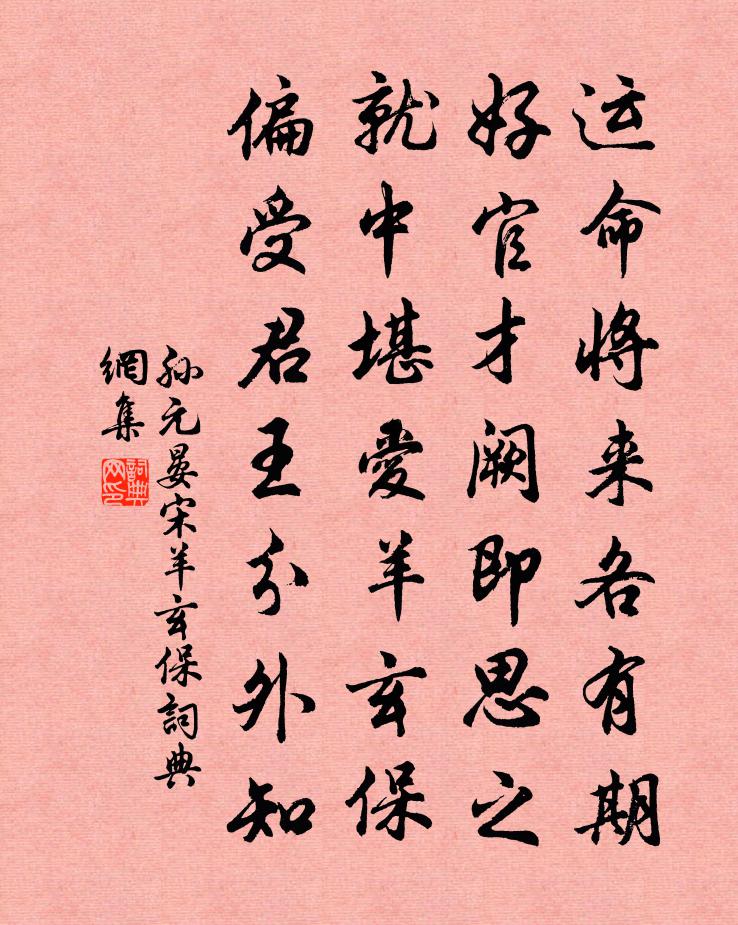 运命将来各有期
好官才阙即思之
就中堪爱羊玄保
偏受君王分外知
孙元晏宋羊玄保詞典
網集
詞典
网印